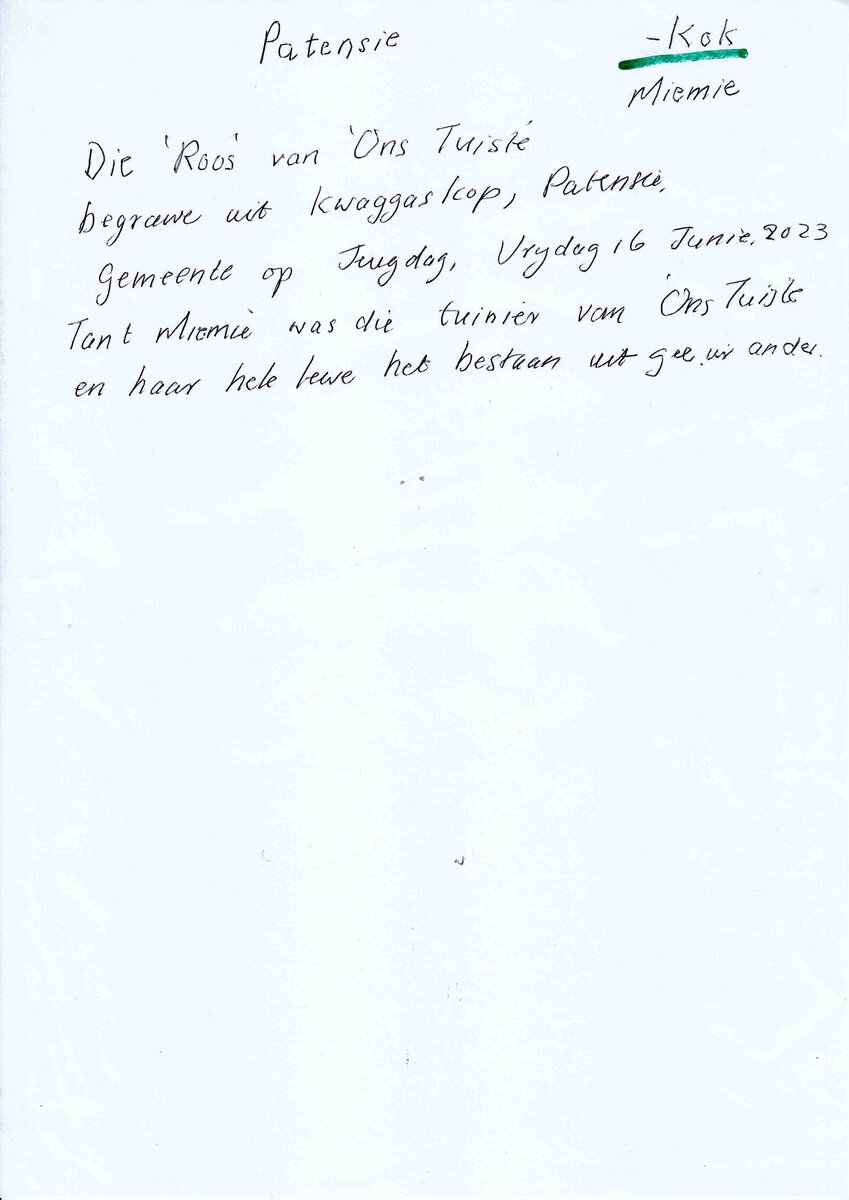 Patensie
-Kok
Miemie
Die 'Roos' van 'Ons Tuiste'
begrawe uit Kwaggaskop, Patensie,
gemeente op Jeugdag, Vrydag 16 Junie, 2023
Tant Miemie was die tuinier van 'Ons Tuiste
en haar hele lewe het bestaan uit gee vir ander.